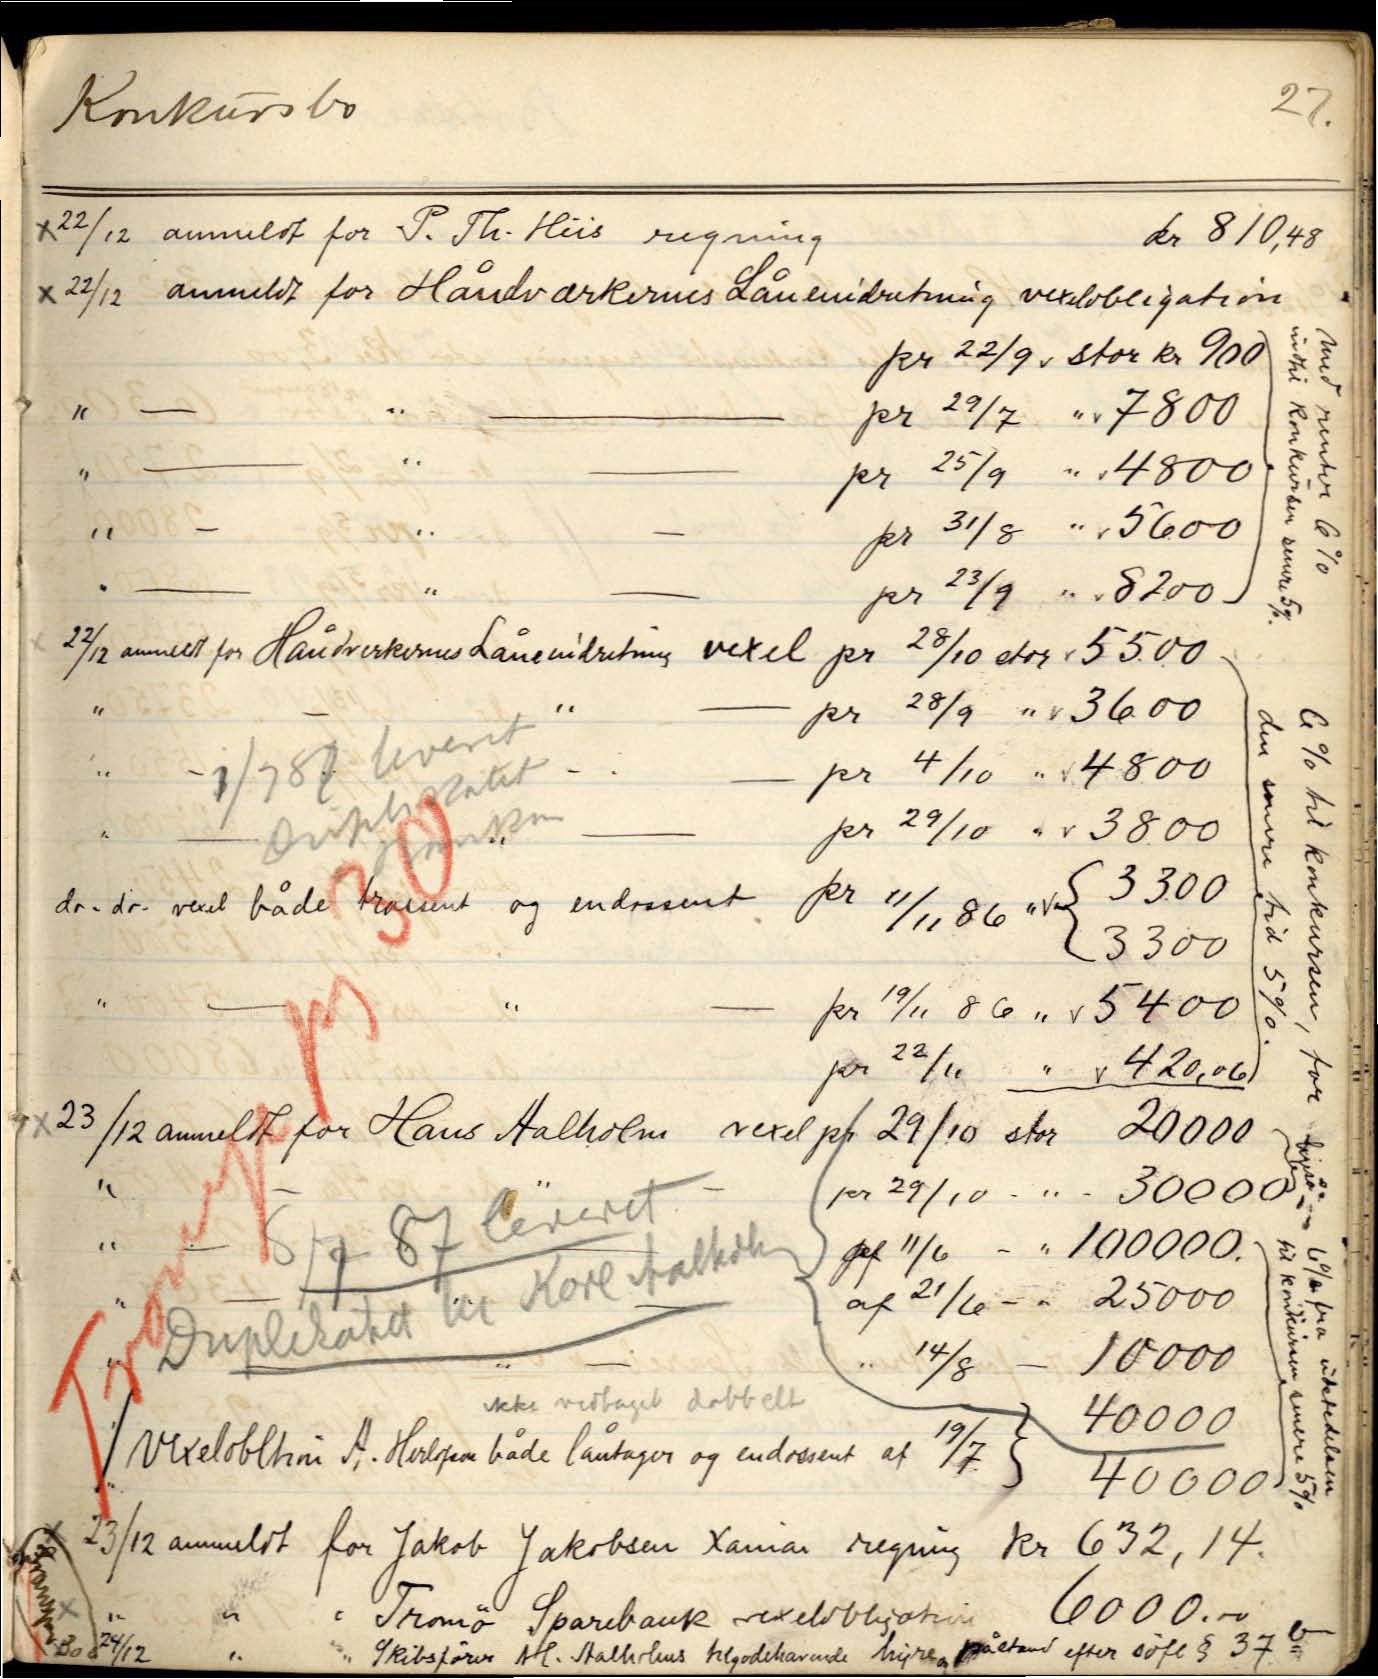 Konkursbo 27.
x 22/12 anmeldt for P. Th. Hiis regning kr 810,48
x 22/12 anmeldt for Håndværkernes Låneindretning vexelobligation
pr 22/9 stor kr 900
" — " — pr 29/7 " 7800
" — " — pr 25/9 " 4800
" — " — pr 31/8 " 5600
" — " — pr 23/9 " 8200
med renter 6%
indtil konkursen senere 5%.
22/12 anmeldt for Håndverkernes Låneindretning vexel pr 28/10 stor 5500
" — " — pr 28/9 " 3600
" — — pr 4/10 " 4800
" — " — pr 29/10 " 3800
1/7 87 leveret
Duplikatet
do - do - vexel både trassent og endossent pr 11/11 86 " 3300
3300
" — " — pr 19/11 86 " 5400
pr 22/11 " 420,06
6% til konkursen, for
den senere tid 5%.
Tromö p 30
x 23/12 anmeldt for Hans Aalholm vexel pr 29/10 stor 20000
" — " — pr 29/10 - " - 30000
" — pr 11/6 - " 100000.
" — " — af 21/6 - " 25000
" — " — " 14/8 — 10000
8/7 87 leveret
Duplikatet til Karl Aalholm
ikke vedtaget dobbelt
40000
" Vexelobltion A. Herlofson både låntager og endossent af 19/7
40000
6% fra udstedelsen
til konkursen senere 5%
x 23/12 anmeldt for Jakob Jakobsen regning kr 632,14.
x " " " Tromö Sparebank vexelobligation 6000.00
24/12 " " Skibsförer Aalholms tilgodehavende hyre påstand efter söfl § 37